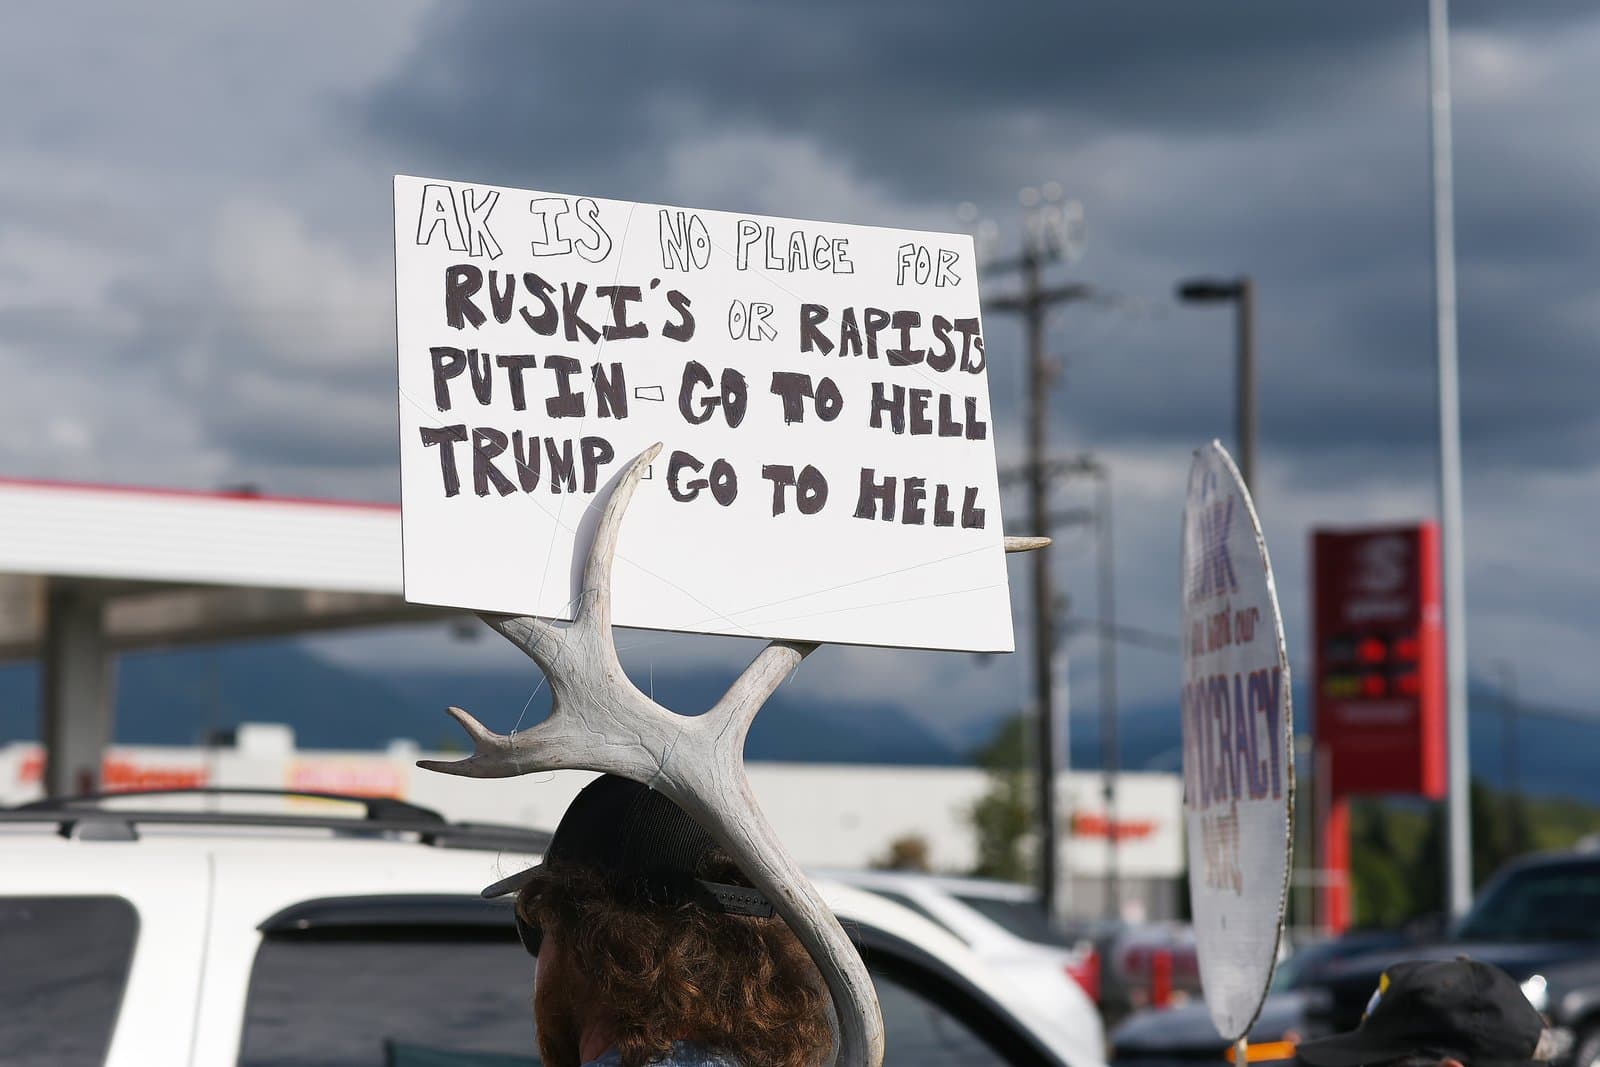 AK IS NO PLACE FOR
RUSKI'S OR RAPISTS
PUTIN - GO TO HELL
TRUMP - GO TO HELL
our